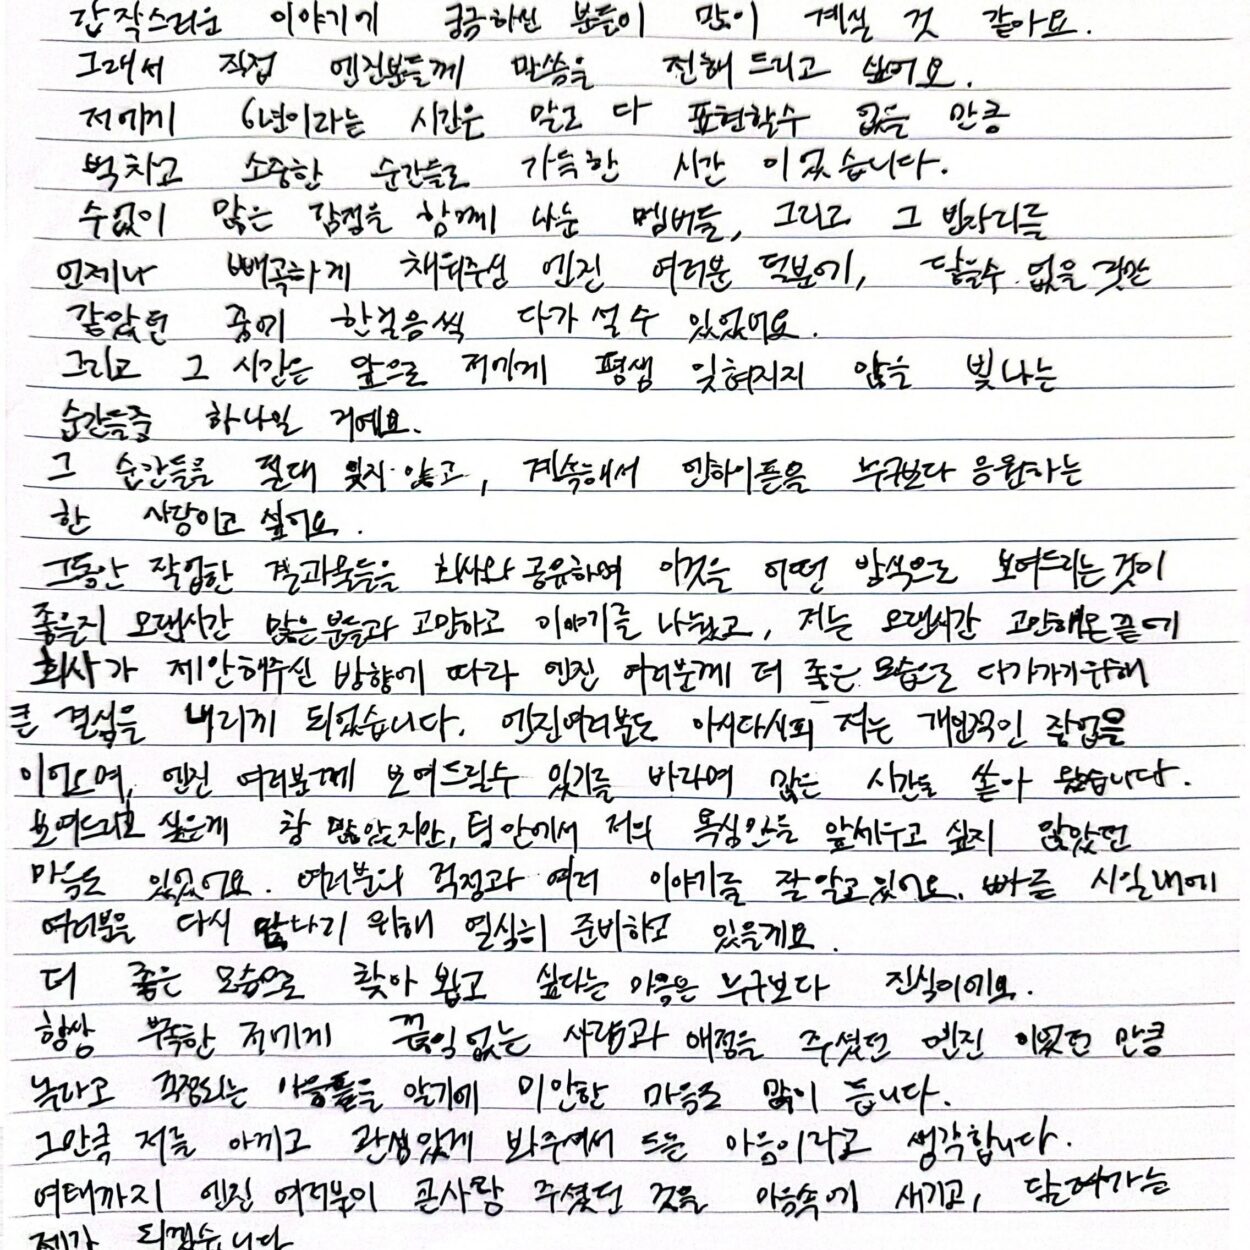 갑작스러운 이야기에 궁금하신 분들이 많이 계실 것 같아요.
그래서 직접 엔진분들께 말씀을 전해 드리고 싶어요.
저에게 6년이라는 시간은 말로 다 표현할수 없을 만큼
벅차고 소중한 순간들로 가득한 시간 이었습니다.
수없이 많은 감정을 함께 나눈 멤버들, 그리고 그 빈자리를
언제나 빼곡하게 채워주신 엔진 여러분 덕분에, 닿을수 없을 것만
같았던 꿈에 한걸음씩 다가 설 수 있었어요.
그리고 그 시간은 앞으로 저에게 평생 잊혀지지 않을 빛나는
순간들중 하나일 거예요.
그 순간들을 절대 잊지 않고, 계속해서 엔하이픈을 누구보다 응원하는
한 사람이고 싶어요.
그동안 작업한 결과물들을 회사와 공유하며 이것을 어떤 방식으로 보여드리는 것이
좋을지 오랜시간 많은분들과 고민하고 이야기를 나눴고, 저는 오랜시간 고민해온 끝에
회사가 제안해주신 방향에 따라 엔진 여러분께 더 좋은 모습으로 다가가기위해
큰 결심을 내리게 되었습니다. 엔진여러분도 아시다시피 저는 개인적인 작업을
이어오며, 엔진 여러분께 보여드릴수 있기를 바라며 많은 시간을 쏟아 왔습니다.
보여드리고 싶은게 참 많았지만, 팀 안에서 저의 욕심만을 앞세우고 싶지 않았던
마음도 있었어요. 여러분의 걱정과 여러 이야기를 잘 알고 있어요. 빠른 시일내에
여러분을 다시 만나기 위해 열심히 준비하고 있을게요.
더 좋은 모습으로 찾아 뵙고 싶다는 마음은 누구보다 진심이에요.
항상 부족한 저에게 끊임없는 사랑과 애정을 주셨던 엔진 이었던 만큼
놀라고 걱정되는 마음들을 알기에 미안한 마음도 많이 듭니다.
그만큼 저를 아끼고 관심있게 봐주셔서 드는 마음이라고 생각합니다.
여태까지 엔진 여러분이 큰사랑 주셨던 것을 마음속에 새기고, 달려가는
제가 되겠습니다